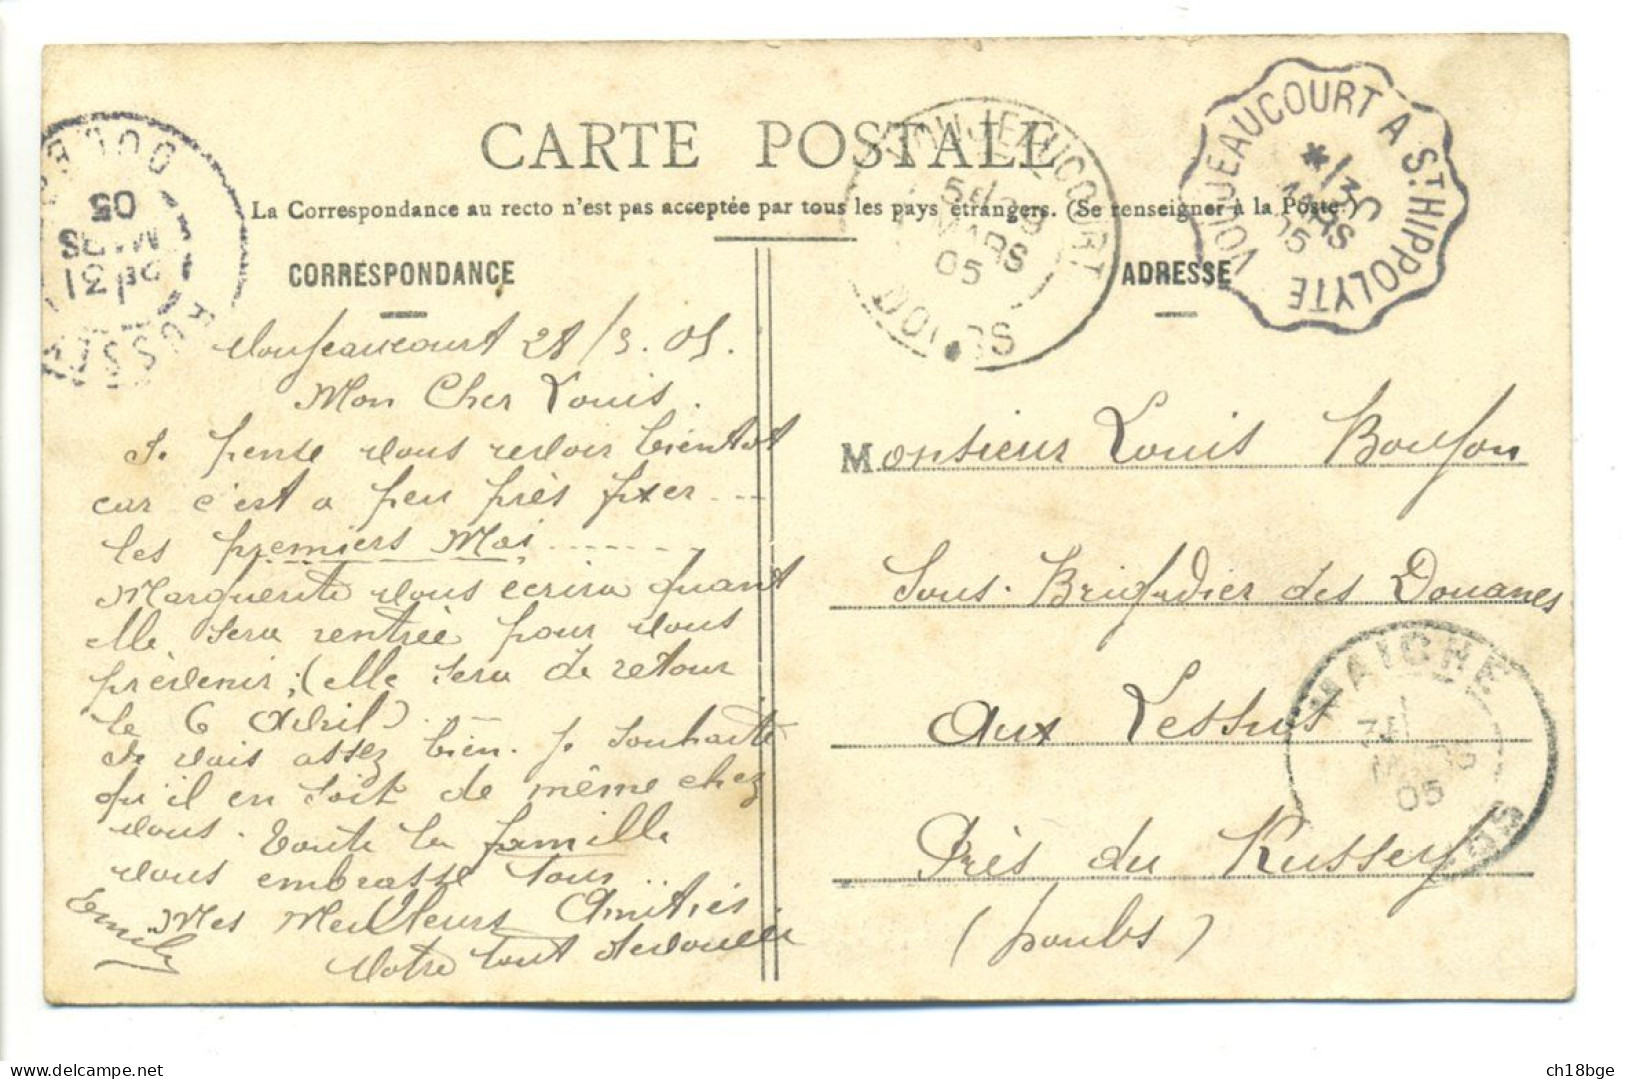 CARTE POSTALE
La Correspondance au recto n'est pas acceptée par tous les pays étrangers. (Se renseigner à la Poste.)
CORRESPONDANCE
Voujeaucourt 28/3.05.
Mon Cher Louis.
Je pense vous revoir bientot
car c'est a peu près fixer ...
les premiers Mai ......
Marguerite vous ecrira quant
elle sera rentrée pour vous
prèvenir; (elle sera de retour
le 6 Avril).
Je vais assez bien. Je souhaite
qu'il en soit de même chez
vous. Toute la famille
vous embrasse tous
Mes Meilleurs Amitiés
Votre tout
Emile
ADRESSE
Monsieur Louis
Sous-Brigadier des Douanes
Aux Lessus
Près du Russey
(Doubs)
VOUJEAUCOURT A ST HIPPOLYTE
MARS
05
VOUJEAUCOURT
MARS
05
DOUBS
MAICHE
MARS
05
MARS
05
ch18bge
delcampe.net